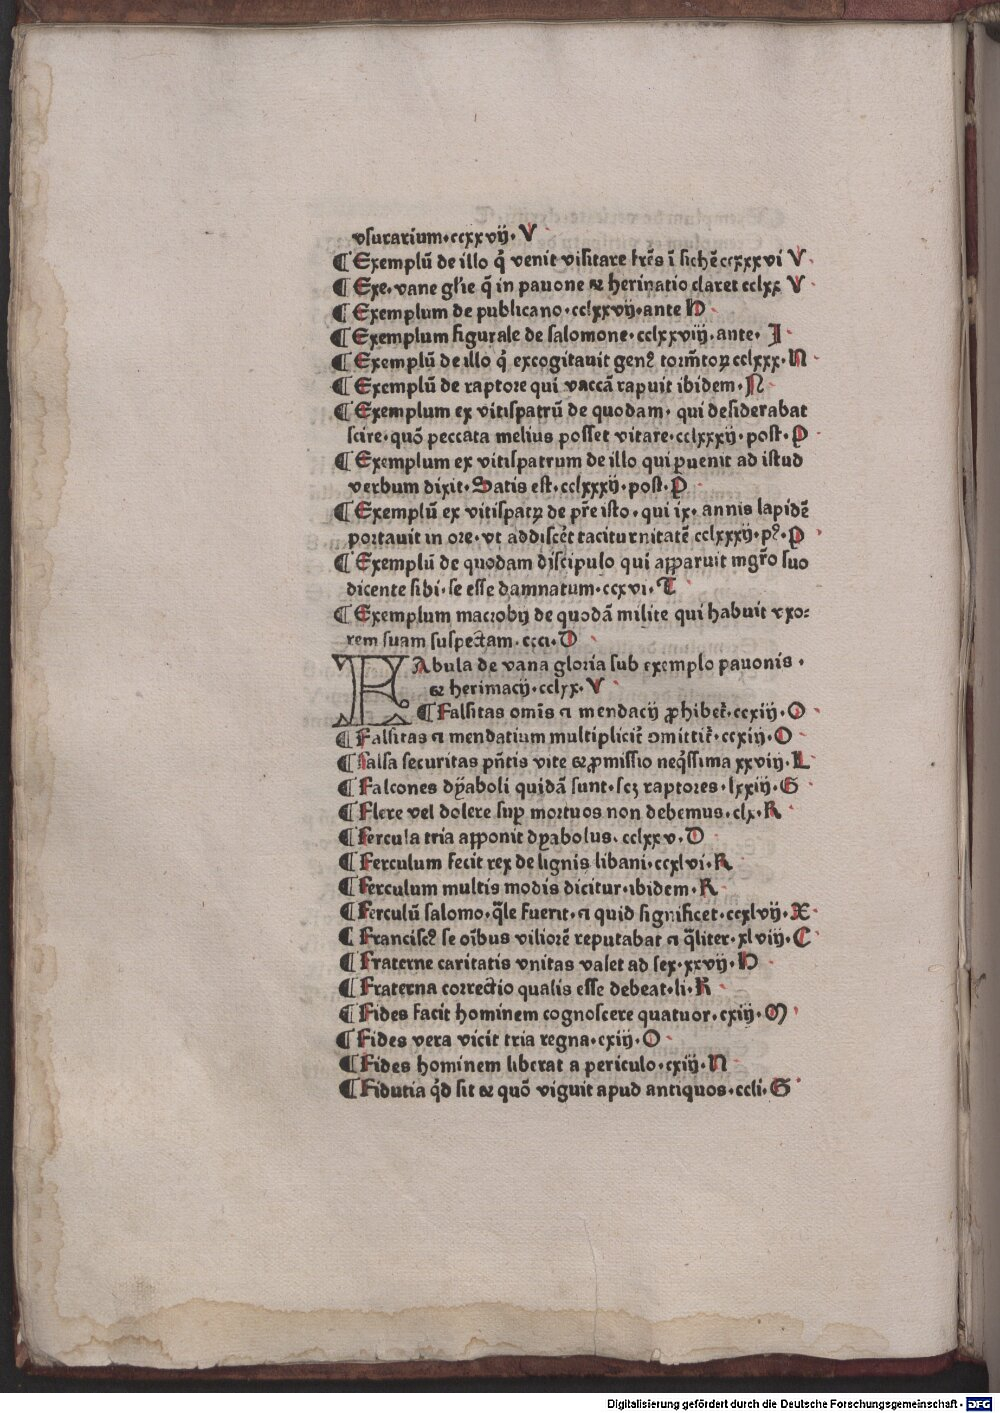 vsurarium.ccxxvij.V
¶Exemplū de illo q̇ venit visitare frēs ī sichē ccxxxvi V
¶Exe.vane gl'ie q̄ in pauone ⁊ herinatio claret cclxx V
¶Exemplum de publicano.cclxxvij.ante H
¶Exemplum figurale de salomone.cclxxviij.ante.I
¶Exemplū de illo q̇ excogitauit genꝰ torm̄toꝝ cclxxx.N
¶Exemplū de raptore qui vaccā rapuit ibidem.N
¶Exemplum ex vitispatrū de quodam. qui desiderabat
scire.quō peccata melius posset vitare.cclxxxij.post.P
¶Exemplum ex vitispatrum de illo qui ꝑuenit ad istud
verbum dixit.Satis est.cclxxxij.post.P
¶Exemplū ex vitispatꝝ de p̄re isto.qui ix. annis lapidē
portauit in ore.vt addiscēt taciturnitatē cclxxxij.pꝰ.P
¶Exemplū de quodam discipulo qui apparuit mgr̄o suo
dicente sibi.se esse damnatum.ccxvi.T
¶Exemplum macrobij de quodā milite qui habuit vxo-
rem suam suspectam.ccci.D
FAbula de vana gloria sub exemplo pauonis.
⁊ herimacij.cclxx.V
¶Falsitas omīs ⁊ mendacij ꝓhibet̄.ccxiij.O
¶Falsitas ⁊ mendatium multiplicit̄ ꝯmittit̄.ccxiij.O
¶Falsa securitas pn̄tis vite ⁊ ꝓmissio neq̇ssima xxviij.L
¶Falcones dyaboli quidā sunt.scꝫ raptores.lxxiij.G
¶Flere vel dolere suꝑ mortuos non debemus.clx.R
¶Fercula tria apponit dyabolus.cclxxv.D
¶Ferculum fecit rex de lignis libani.ccxlvi.R
¶Ferculum multis modis dicitur.ibidem.R
¶Ferculū salomo.q̄le fuerit.⁊ quid significet.ccxlvij.X
¶Franciscꝰ se oībus viliorē reputabat ⁊ q̄liter.xlviij.C
¶Fraterne caritatis vnitas valet ad sex.xxvij.H
¶Fraterna correctio qualis esse debeat.li.R
¶Fides facit hominem cognoscere quatuor.cxiij.M
¶Fides vera vicit tria regna.cxiij.O
¶Fides hominem liberat a periculo.cxiij.N
¶Fidutia q̇d sit ⁊ quō viguit apud antiquos.ccli.G
Digitalisierung gefördert durch die Deutsche Forschungsgemeinschaft - DFG